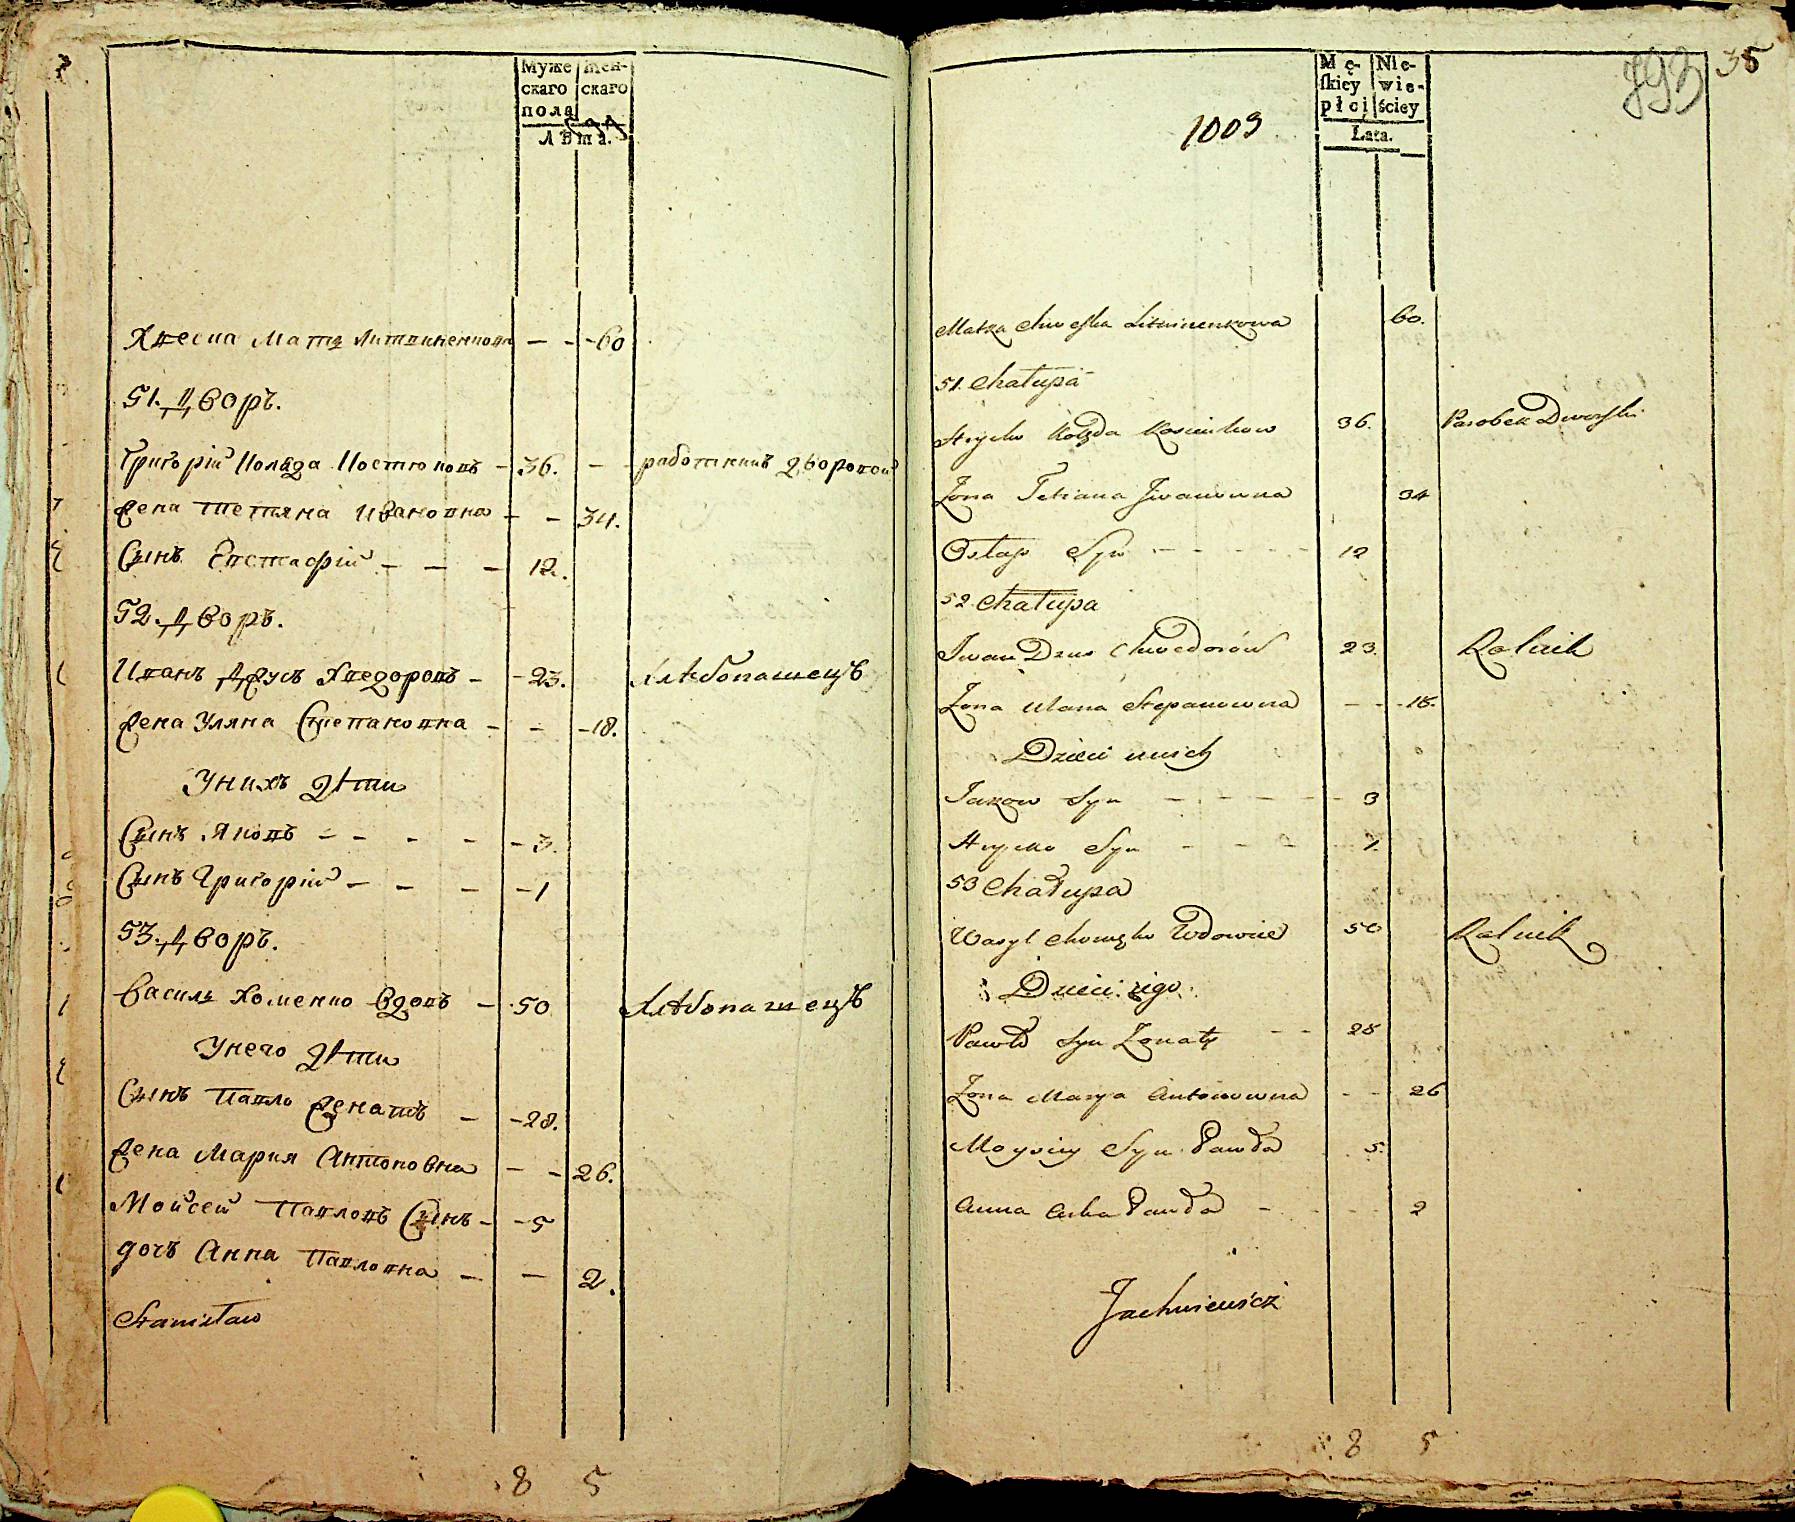 Муже
скаго
пола
жен-
скаго
Лѣта.
Хвесна Мать Литвиненкова - - 60
51. Дворъ.
Григорій Коляда Костюковъ - 36. - - работникъ дворовой
Жена Тетяна Ивановна - - 34.
Сынъ Евстафій - - - 12.
52. Дворъ.
Иванъ Дзусъ Хведоровъ - - 23. Хлѣбопашецъ
Жена Уляна Степановна - - - 18.
У нихъ дѣти
Сынъ Яковъ - - - - - 3.
Сынъ Григорій - - - - 1
53. Дворъ.
Василь Хоменко Вдовъ - 50 Хлѣбопашецъ
У него дѣти
Сынъ Павло Женатъ - - 28.
Жена Мария Антоновна - - 26.
Мойсей Павловъ Сынъ - - 5
дочъ Анна Павловна - - 2.
Stanisław
8 5
793 35
1009
Mę-
skiey
płci
Nie-
wie-
ściey
Lata.
Matka Litwinenkowa 60.
51. Chałupa
Hryćko Kolęda 36. Parobek Dworski
Żona Tetiana Jwanowna 34
Ostap Syn - - - - - 12
52 Chałupa
Jwan Dzus Chwedorów 23. Rolnik
Żona Ulana Stepanowna - - - 18.
Dzieci u nich
Jakow Syn - - - - - 3
Hryćko Syn - - - 1.
53 Chałupa
Wasyl Chomęko Wdowiec 50 Rolnik
Dzieci iego
Pawło Syn Żonaty - - 28
Żona Marya Antonowna - - 26
Moysiey Syn Pawła 5.
Anna Curka Pawła - - - 2
Jachniewicz
8 5